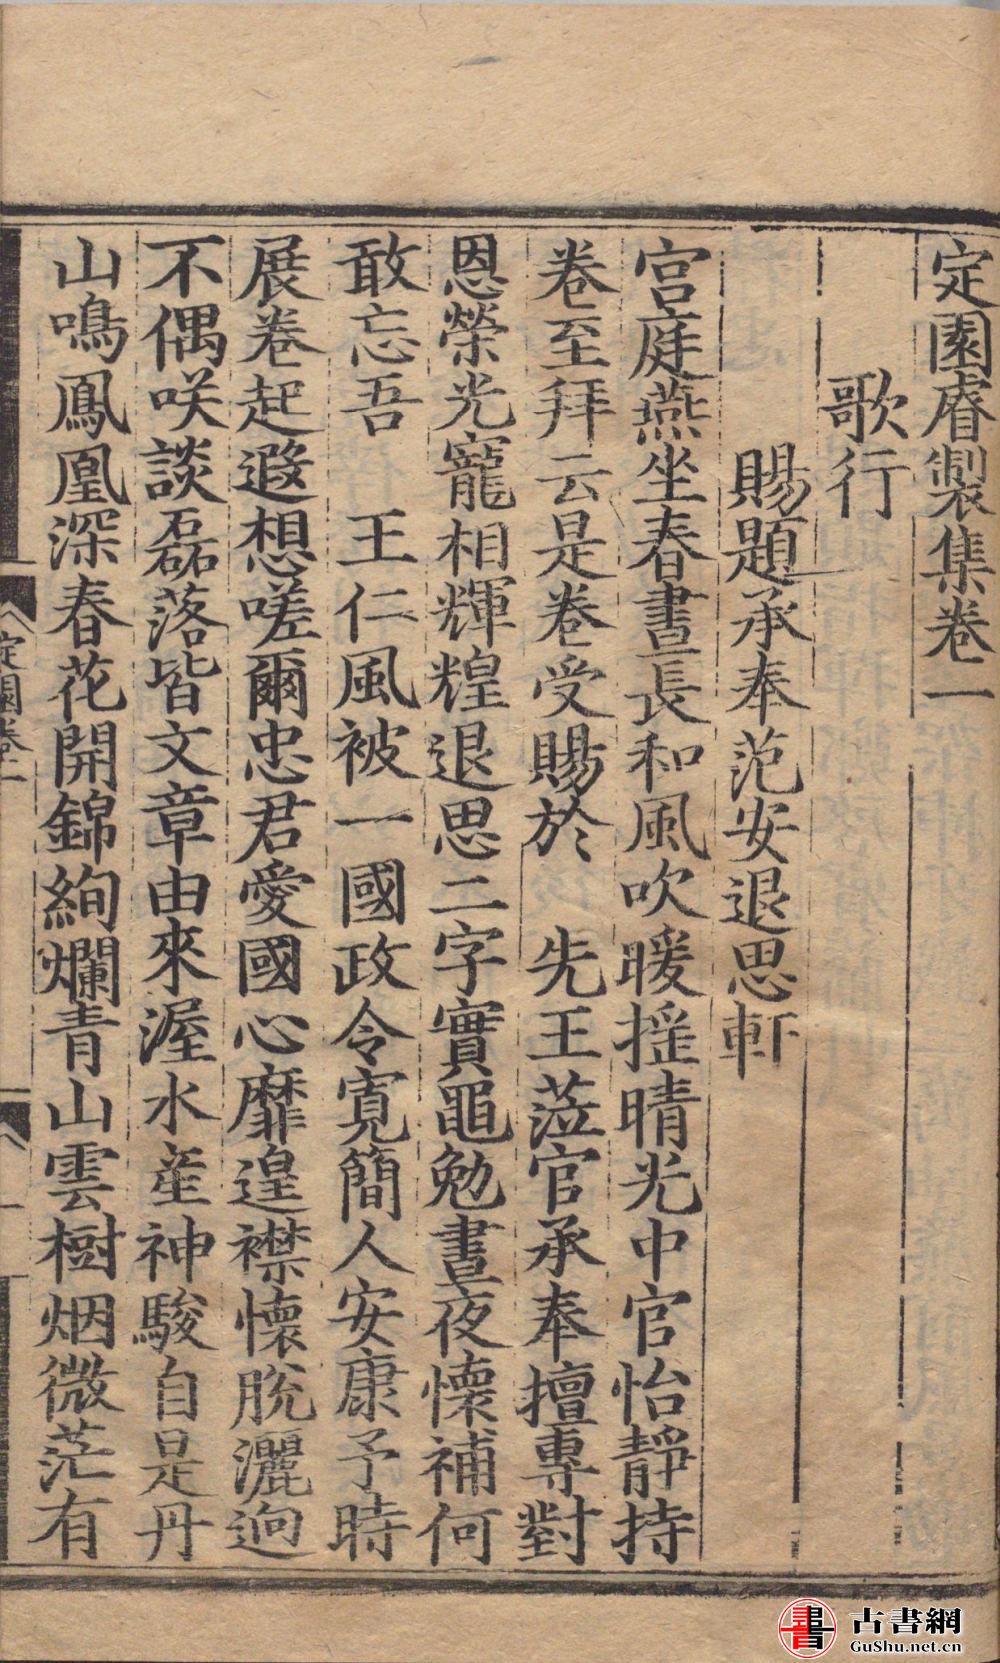 定園睿製集卷一
歌行
賜題承奉范安退思軒
宮庭燕坐春晝長和風吹暖揺晴光中官怡靜持
卷至拜云是卷受賜於　先王蒞官承奉擅專對
恩榮光寵相輝煌退思二字實黽勉晝夜懷補何
敢忘吾　王仁風被一國政令寬簡人安康予時
展卷起遐想嗟爾忠君愛國心靡遑襟懷脫灑逈
不偶咲談磊落皆文章由來渥水産神駿自是丹
山鳴鳳凰深春花開錦絢爛青山雲樹烟微茫有
定園卷一
古書網
GuShu.net.cn